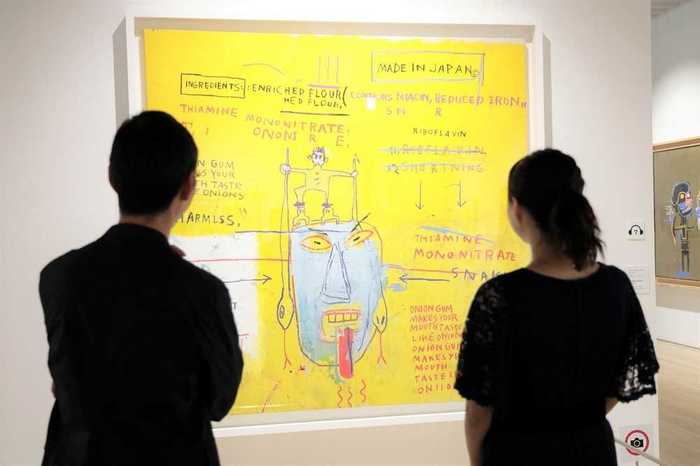 MADE IN JAPAN
INGREDIENTS: ENRICHED FLOUR
HED FLOUR, (
NIACIN, REDUCED IRON
THIAMINE
MONONITRATE.
S N R
ONONI R E.
RIBOFLAVIN
RIBOFLAVIN
SHORTNING
ION GUM
S YOUR
TH TASTE
E ONIONS
HARMLESS,"
THIAMINE
MONONITRATE
SNAK
ONION GUM
MAKES YOUR
MOUTH TASTE
LIKE ONION
ONION GUM
MAKES YOUR
MOUTH
TASTE
ONIO